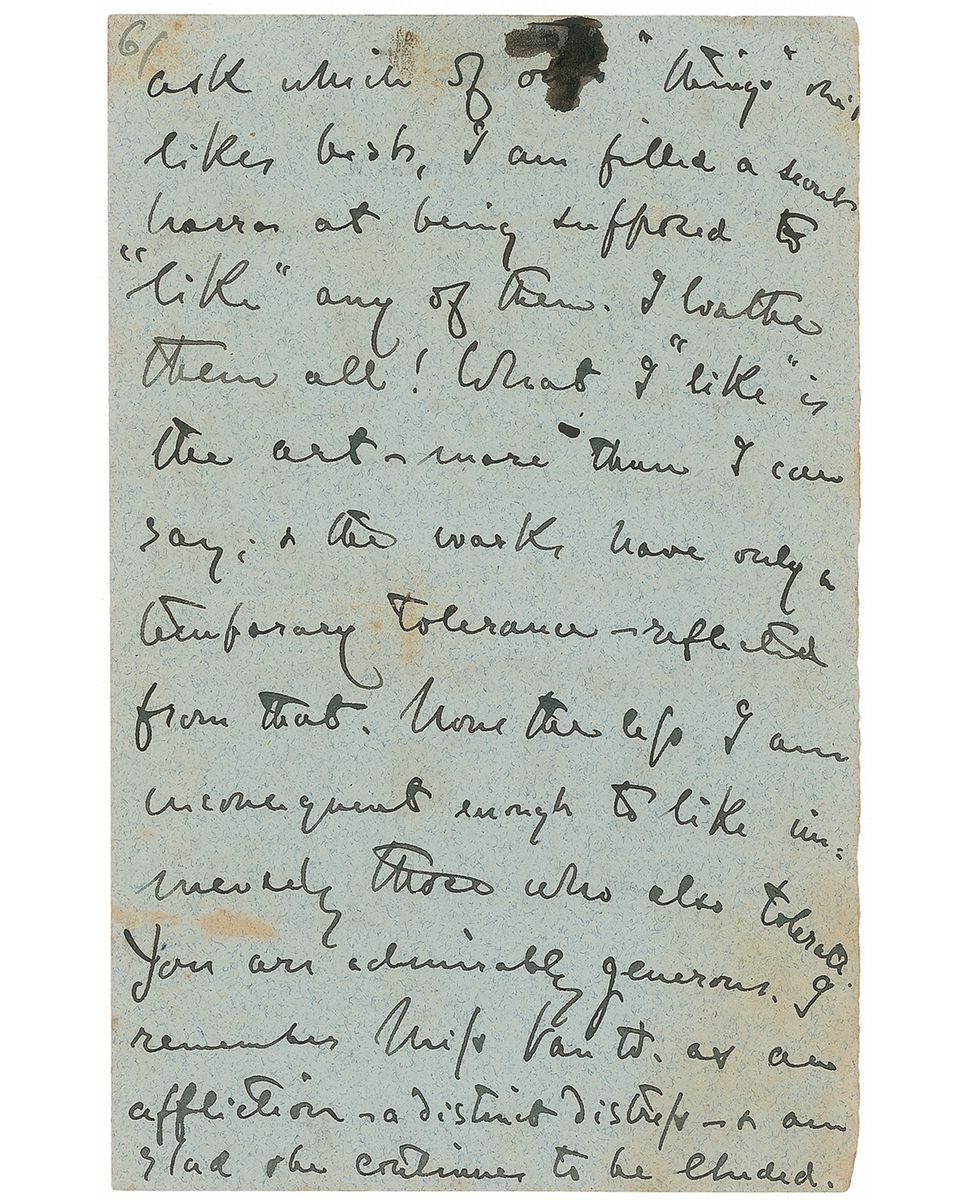 6/
ask which of "things" she
likes best, I am filled a secret
horror at being supposed to
"like" any of them. I loathe
them all! What I "like" is
the art – more than I can
say; & the works have only a
temporary tolerance – reflected
from that. None the less I am
inconsequent enough to like im-
mensely those who also tolerate.
You are admirably generous. I
remember Miss Van as an
affliction – a distinct distress – & am
glad she continues to be eluded.